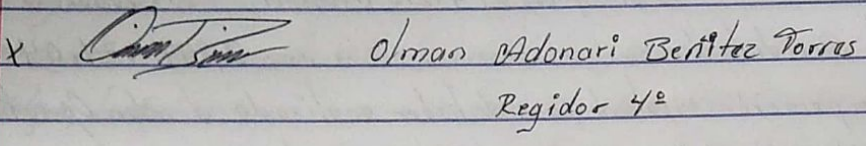 x Olman Adonari Benitez Torres
Regidor 4º